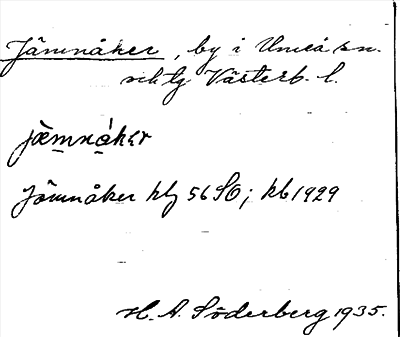 Jämnåker, by i Umeå sn.
och tg Västerb. l.
jæmnåker
Jämnåker kbl 56 SO; kb 1929
H. A. Söderberg 1935.